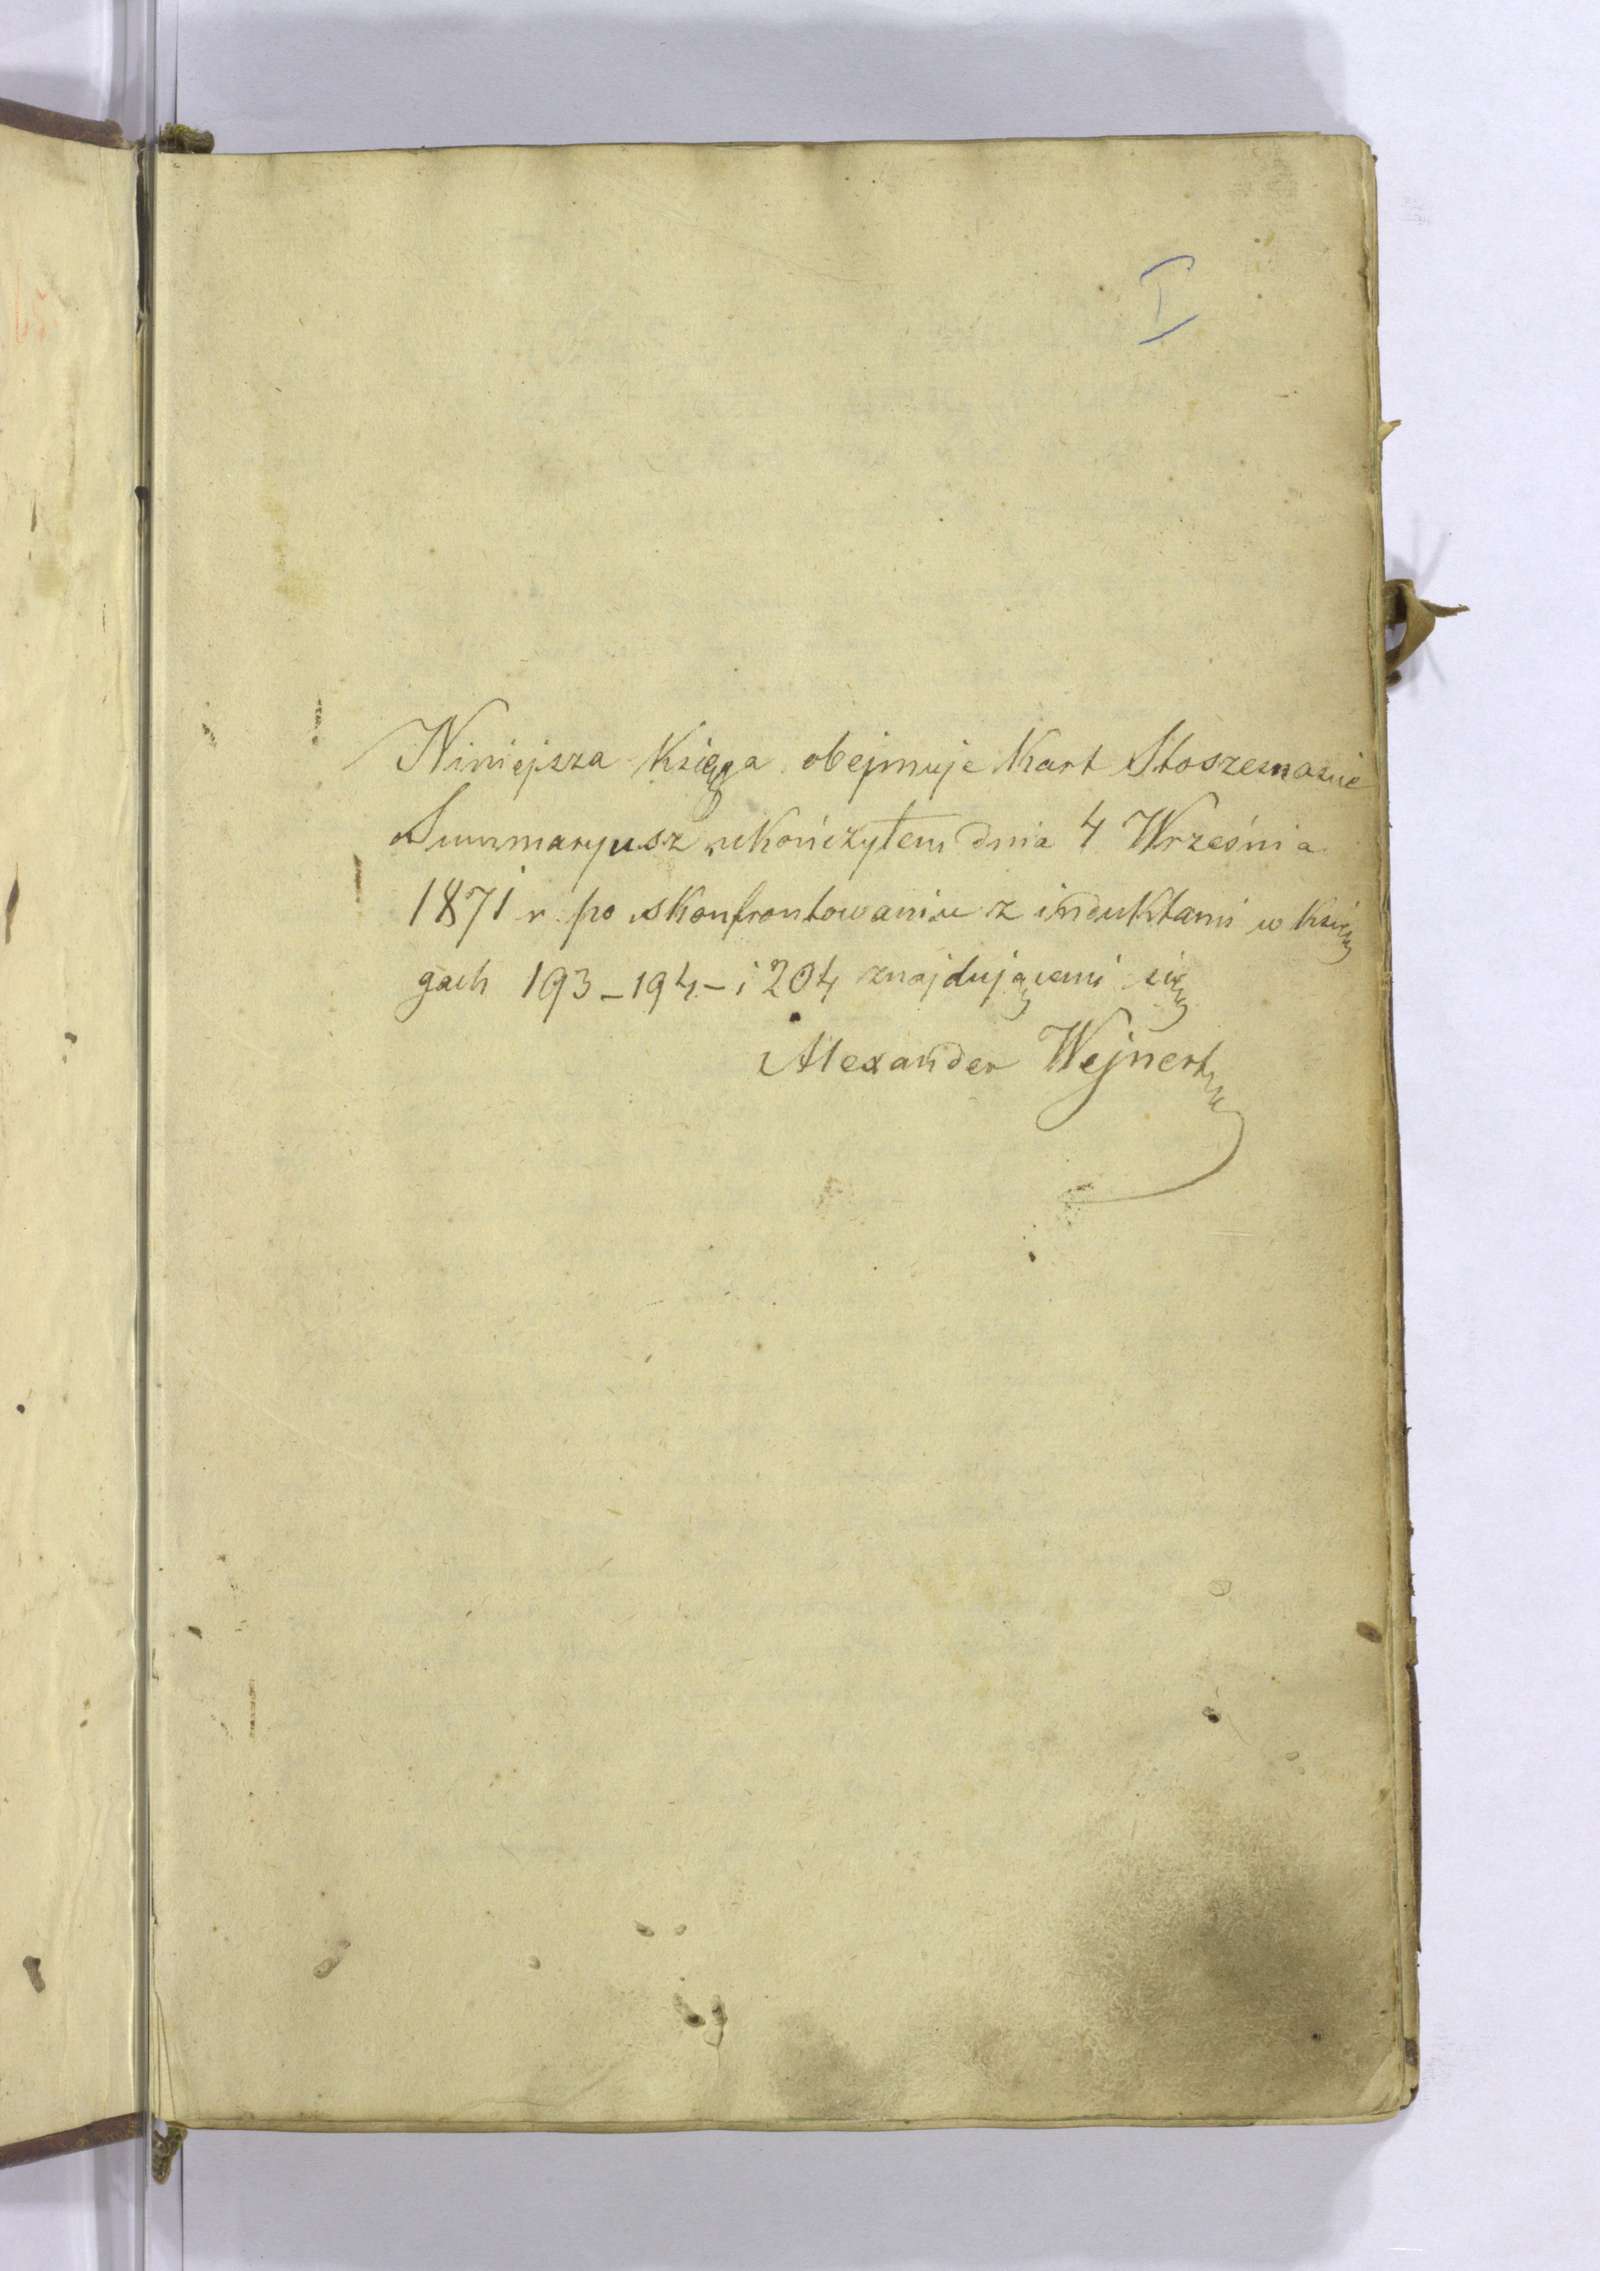 I
Niniejsza Księga obejmuje Kart Stoszesnaście
Summaryusz ukończyłem dnia 4 Września
1871 r. po skonfrontowaniu z induktami w Księ
gach 193 – 194 – i 204 znajdującemi się
Alexander Wejnert